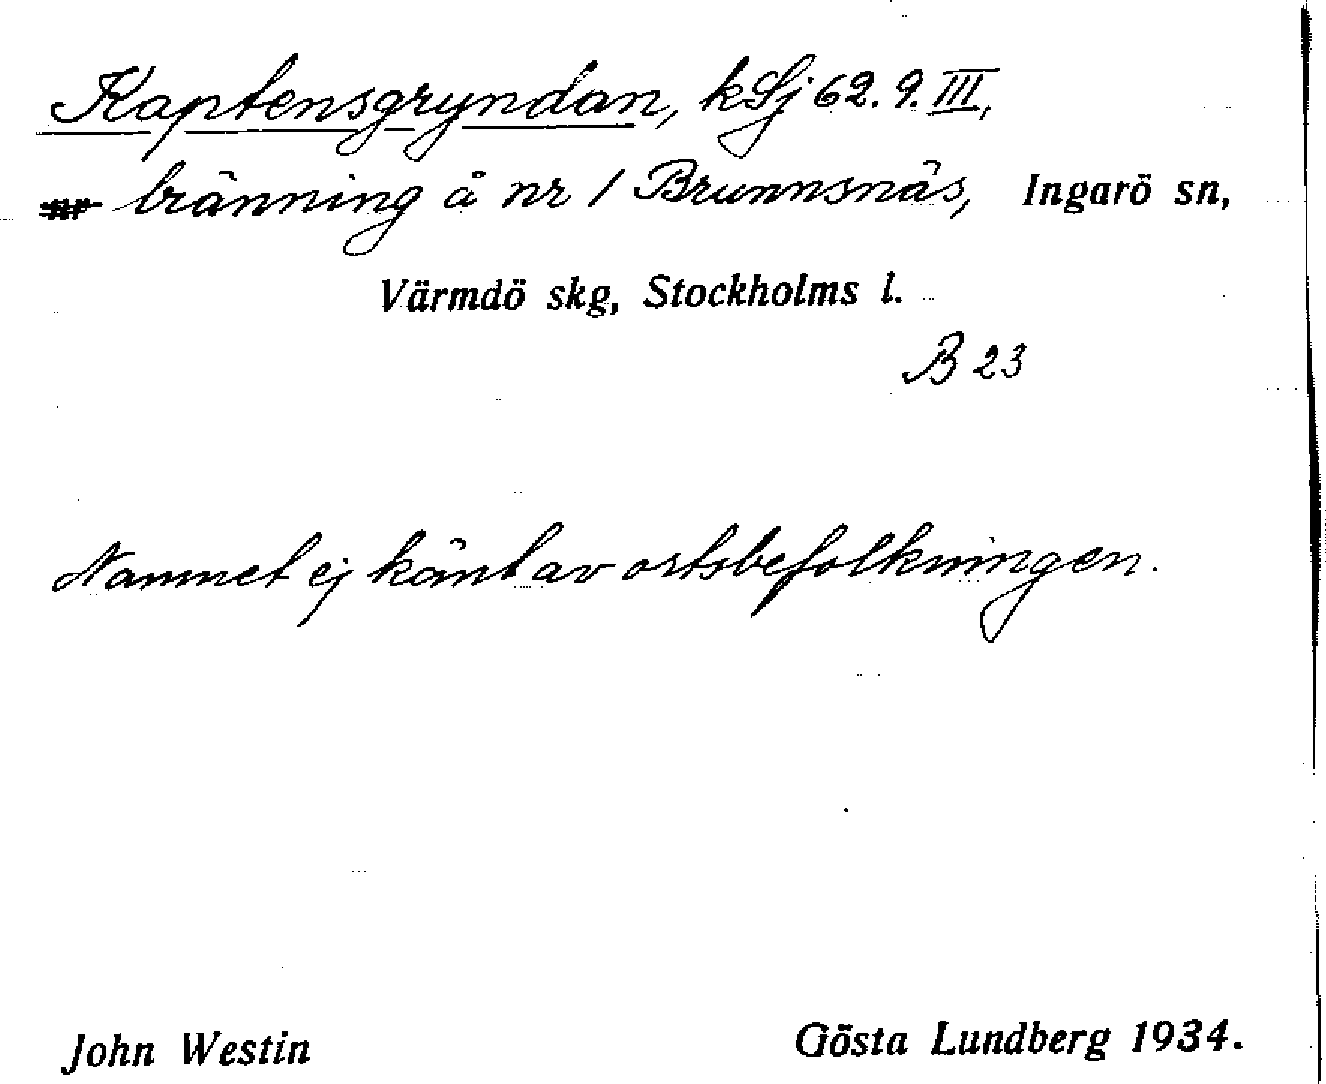 Kaptensgryndan, kSj 62. 9. III,
bränning å nr 1 Brunnsnäs, Ingarö sn,
Värmdö skg, Stockholms l.
B 23
Namnet ej känt av ortsbefolkningen.
John Westin Gösta Lundberg 1934.